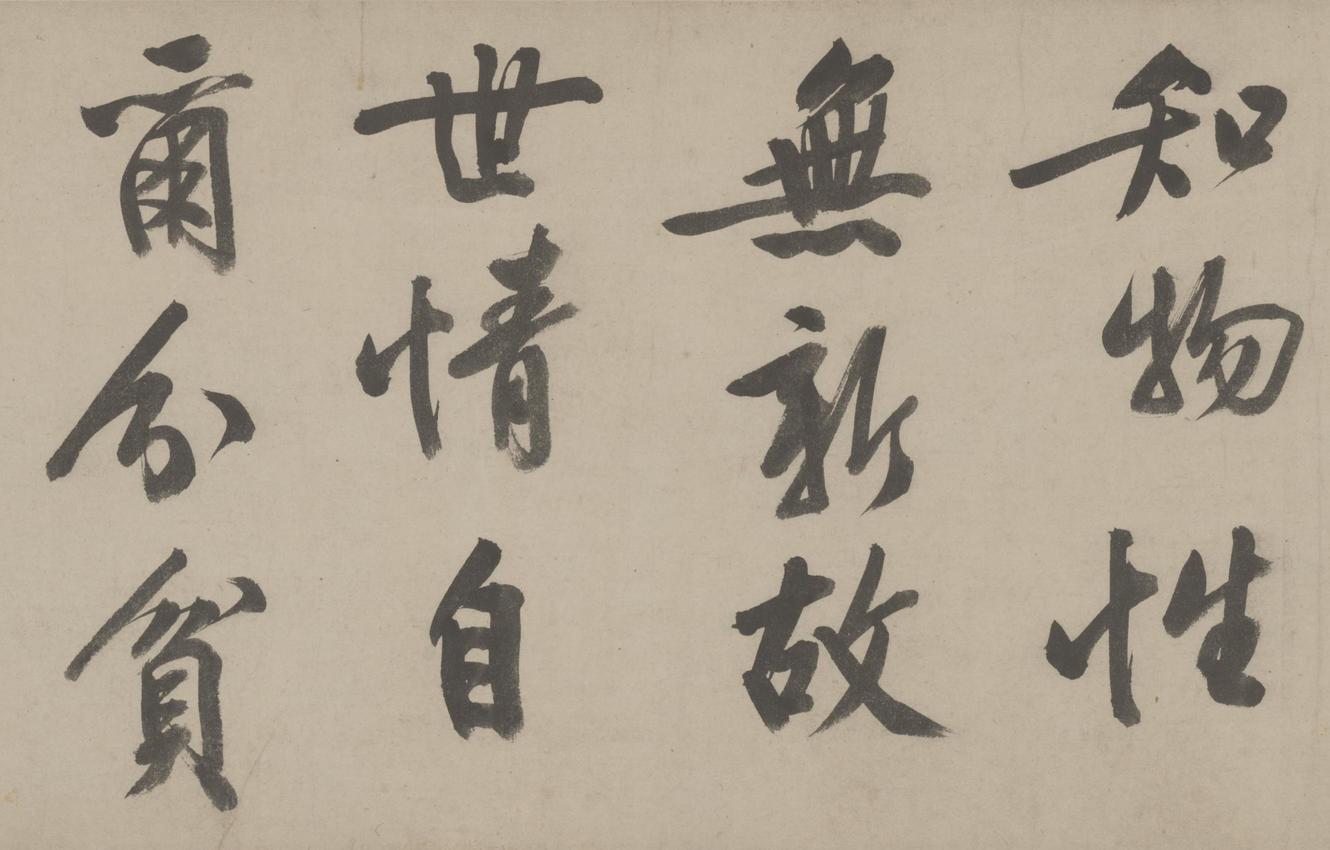 知物性
無新故
世情自
爾分貧